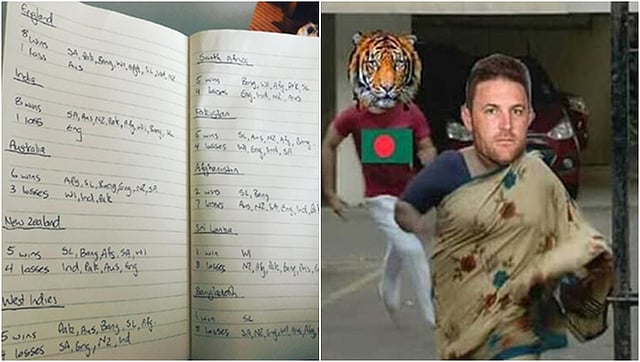 England
8 wins SA, Pak, Bang, WI, Afg, SL, Ind, NZ
1 loss Aus
India
8 wins SA, Aus, NZ, Pak, Afg, WI, Bang, SL
1 loss Eng
Australia
6 wins Afg, SL, Bang, Eng, NZ, SA
3 losses WI, Ind, Pak
New Zealand
5 wins SL, Bang, Afg, SA, WI
4 losses Ind, Pak, Aus, Eng
West Indies
5 wins Pak, Aus, Bang, SL, Afg
losses SA, Eng, NZ, Ind
South Africa
5 wins Bang, WI, Afg, Pak, SL
4 losses Eng, Ind, NZ, Aus
Pakistan
5 wins SL, Aus, NZ, Afg, Bang
4 losses WI, Eng, Ind, SA
Afghanistan
2 wins SL, Bang
7 losses Aus, NZ, SA, Eng, Ind,
Sri Lanka
1 win WI
8 losses NZ, Afg, Pak, Bang, Aus,
Bangladesh
1 win SL
losses SA, NZ, Eng, WI, Aus, Afg